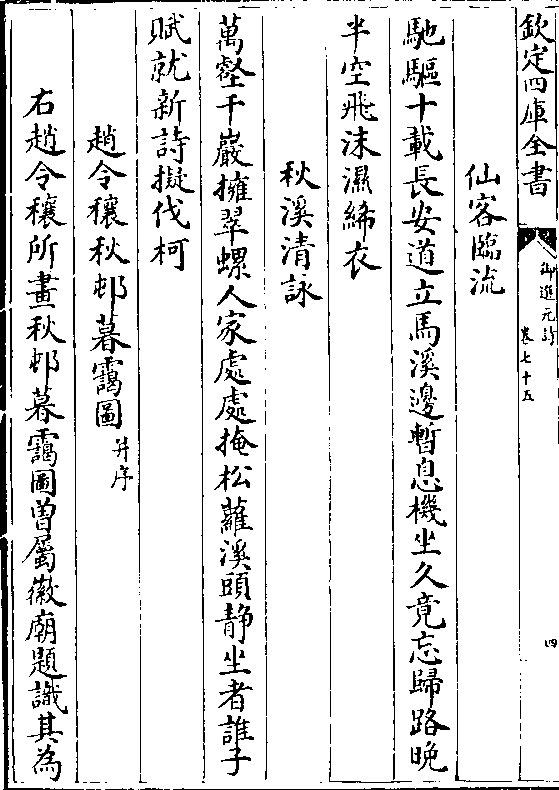 欽定四庫全書
御選元詩
卷七十五
四
仙客臨流
馳驅十載長安道立馬溪邊暫息機坐久竟忘歸路晚
半空飛沫濕絺衣
秋溪清詠
萬壑千巖擁翠螺人家處處掩松蘿溪頭靜坐者誰子
賦就新詩擬伐柯
趙令穰秋邨暮靄圖并序
右趙令穰所畫秋邨暮靄圖曾屬徽廟題識其為